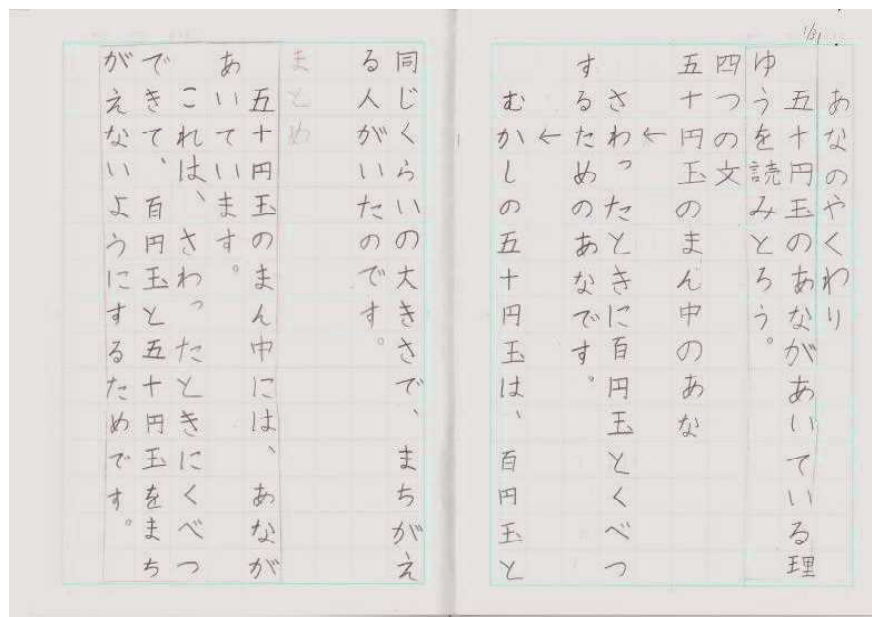 1/31
あなのやくわり
五十円玉のあながあいている理
ゆうを読みとろう。
四つの文
五十円玉のまん中のあな
←
さわったときに百円玉とくべつ
するためのあなです。
←
むかしの五十円玉は、百円玉と
同じくらいの大きさで、まちがえ
る人がいたのです。
まとめ
五十円玉のまん中には、あなが
あいています。
これは、さわったときにくべつ
できて、百円玉と五十円玉をまち
がえないようにするためです。